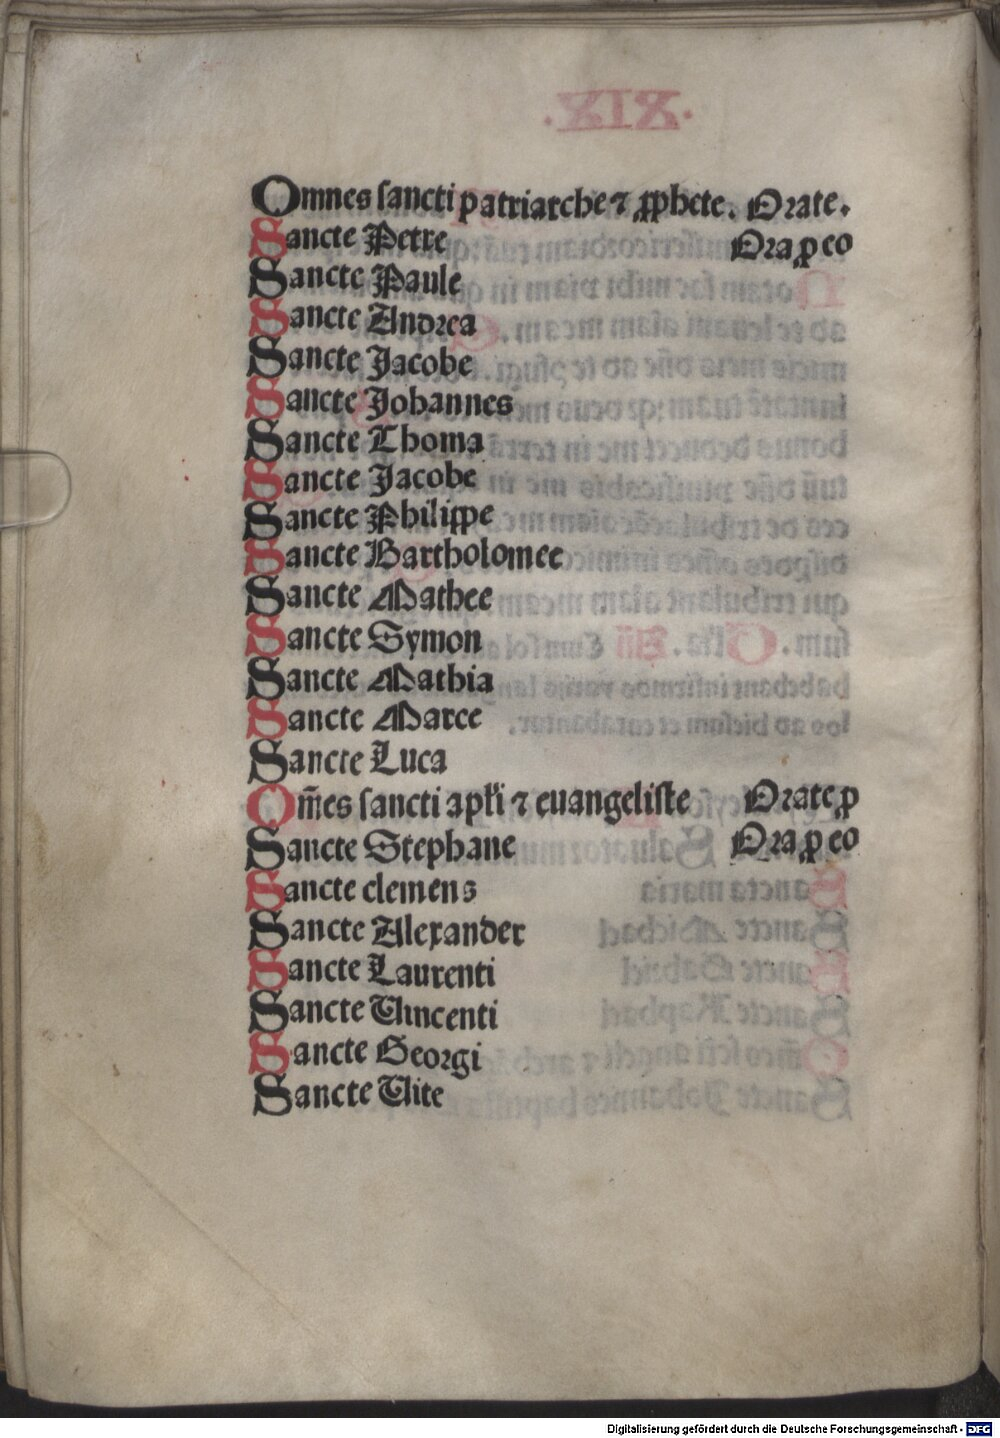 Omnes sancti patriarche ⁊ ꝓphete. Orate.
Sancte Petre Ora ꝓ eo
Sancte Paule
Sancte Andrea
Sancte Jacobe
Sancte Johannes
Sancte Thoma
Sancte Jacobe
Sancte Philippe
Sancte Bartholomee
Sancte Mathee
Sancte Symon
Sancte Mathia
Sancte Marce
Sancte Luca
Om̄es sancti apłi ⁊ euangeliste Orate ꝓ
Sancte Stephane Ora ꝓ eo
Sancte clemens
Sancte Alexander
Sancte Laurenti
Sancte Vincenti
Sancte Georgi
Sancte Vite
Digitalisierung gefördert durch die Deutsche Forschungsgemeinschaft - DFG